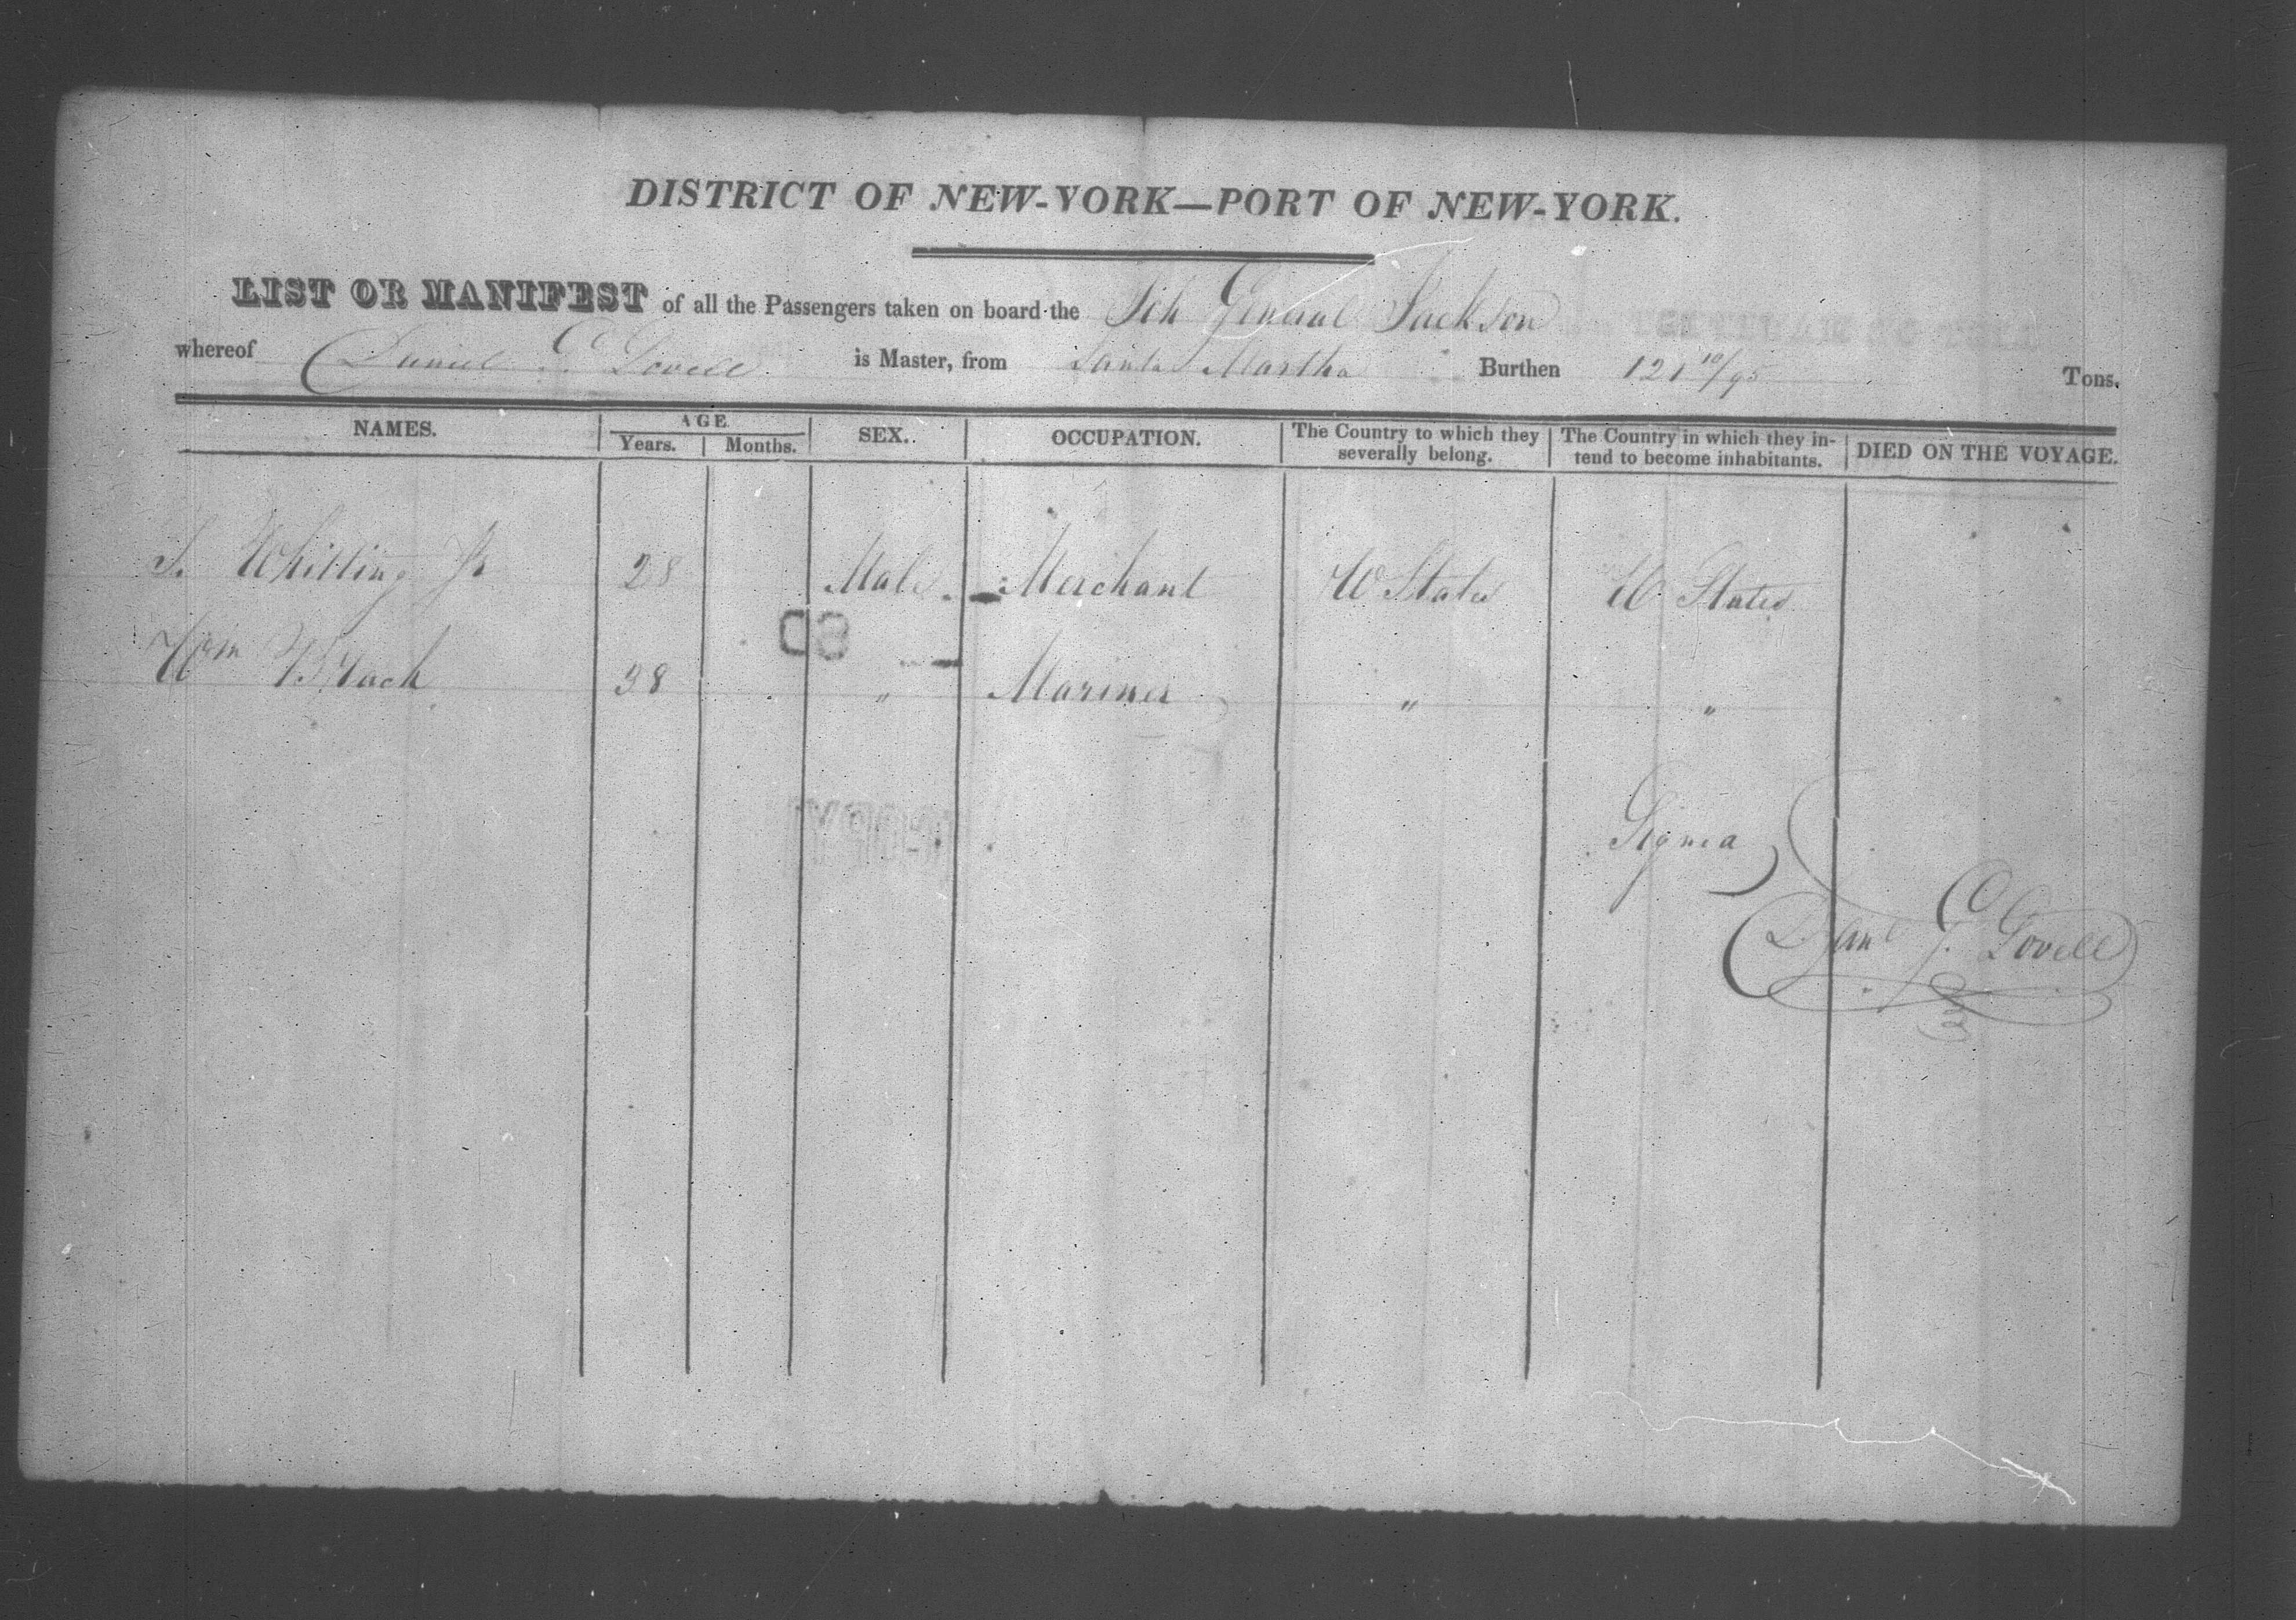 DISTRICT OF NEW-YORK—PORT OF NEW-YORK.
LIST OR MANIFEST of all the Passengers taken on board the Sch General Jackson
whereof Daniel Lovell is Master, from Santa Martha Burthen 121 10/95 Tons.
NAMES. AGE SEX. OCCUPATION. The Country to which they severally belong. The Country in which they intend to become inhabitants. DIED ON THE VOYAGE.
Years. Months.
Whitting Jr 28 Male Merchant U States U States
Wm 38 " Mariner " "
Signed
Danl Lovell